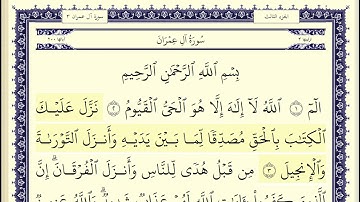 سورة آل عمران ٣
الجزء الثالث
سُورَةُ آلِ عِمْرَانَ
بِسْمِ اللَّهِ الرَّحْمَٰنِ الرَّحِيمِ
الٓمٓ ۝١ اللَّهُ لَا إِلَٰهَ إِلَّا هُوَ الْحَيُّ الْقَيُّومُ ۝٢ نَزَّلَ عَلَيْكَ
الْكِتَابَ بِالْحَقِّ مُصَدِّقًا لِّمَا بَيْنَ يَدَيْهِ وَأَنزَلَ التَّوْرَىٰةَ
وَالْإِنجِيلَ ۝٣ مِن قَبْلُ هُدًى لِّلنَّاسِ وَأَنزَلَ الْفُرْقَانَ ۗ إِنَّ